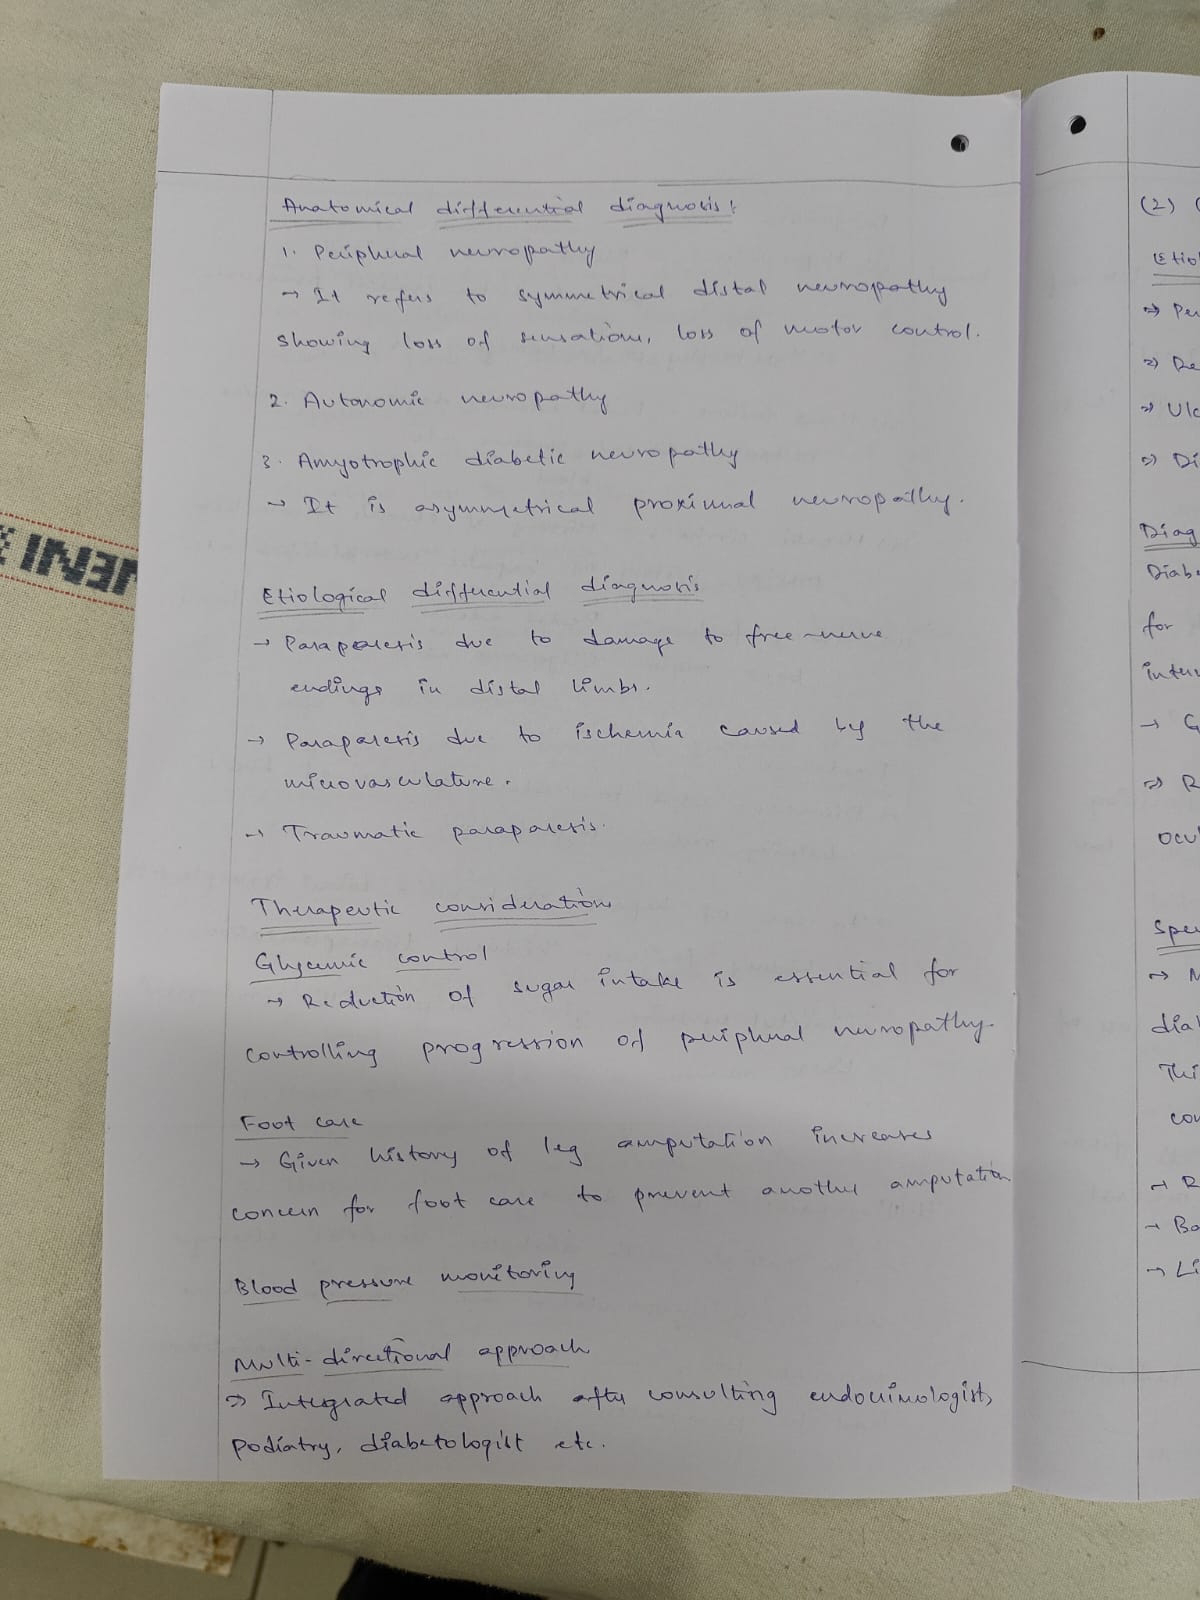 Anatomical differential diagnosis:
1. Peripheral neuropathy
→ It refers to symmetrical distal neuropathy
showing loss of sensations, loss of motor control.
2. Autonomic neuropathy
3. Amyotrophic diabetic neuropathy
→ It is asymmetrical proximal neuropathy.
Etiological differential diagnosis
→ Paraparesis due to damage to free-nerve
endings in distal limbs.
→ Paraparesis due to ischemia caused by the
microvasculature.
→ Traumatic paraparesis.
Therapeutic considerations
Glycemic control
→ Reduction of sugar intake is essential for
controlling progression of peripheral neuropathy.
Foot care
→ Given history of leg amputation increases
concern for foot care to prevent another amputation
Blood pressure monitoring
Multi-directional approach
→ Integrated approach after consulting endocrinologist,
podiatry, diabetologist etc.
(2)
Etiol
⇒ Per
⇒ Re
⇒ Ulc
⇒ Di
Diag
Diabe
for
inter
→ G
⇒ R
ocul
Spe
→ M
dia
Thi
con
→ R
→ Bo
→ Li